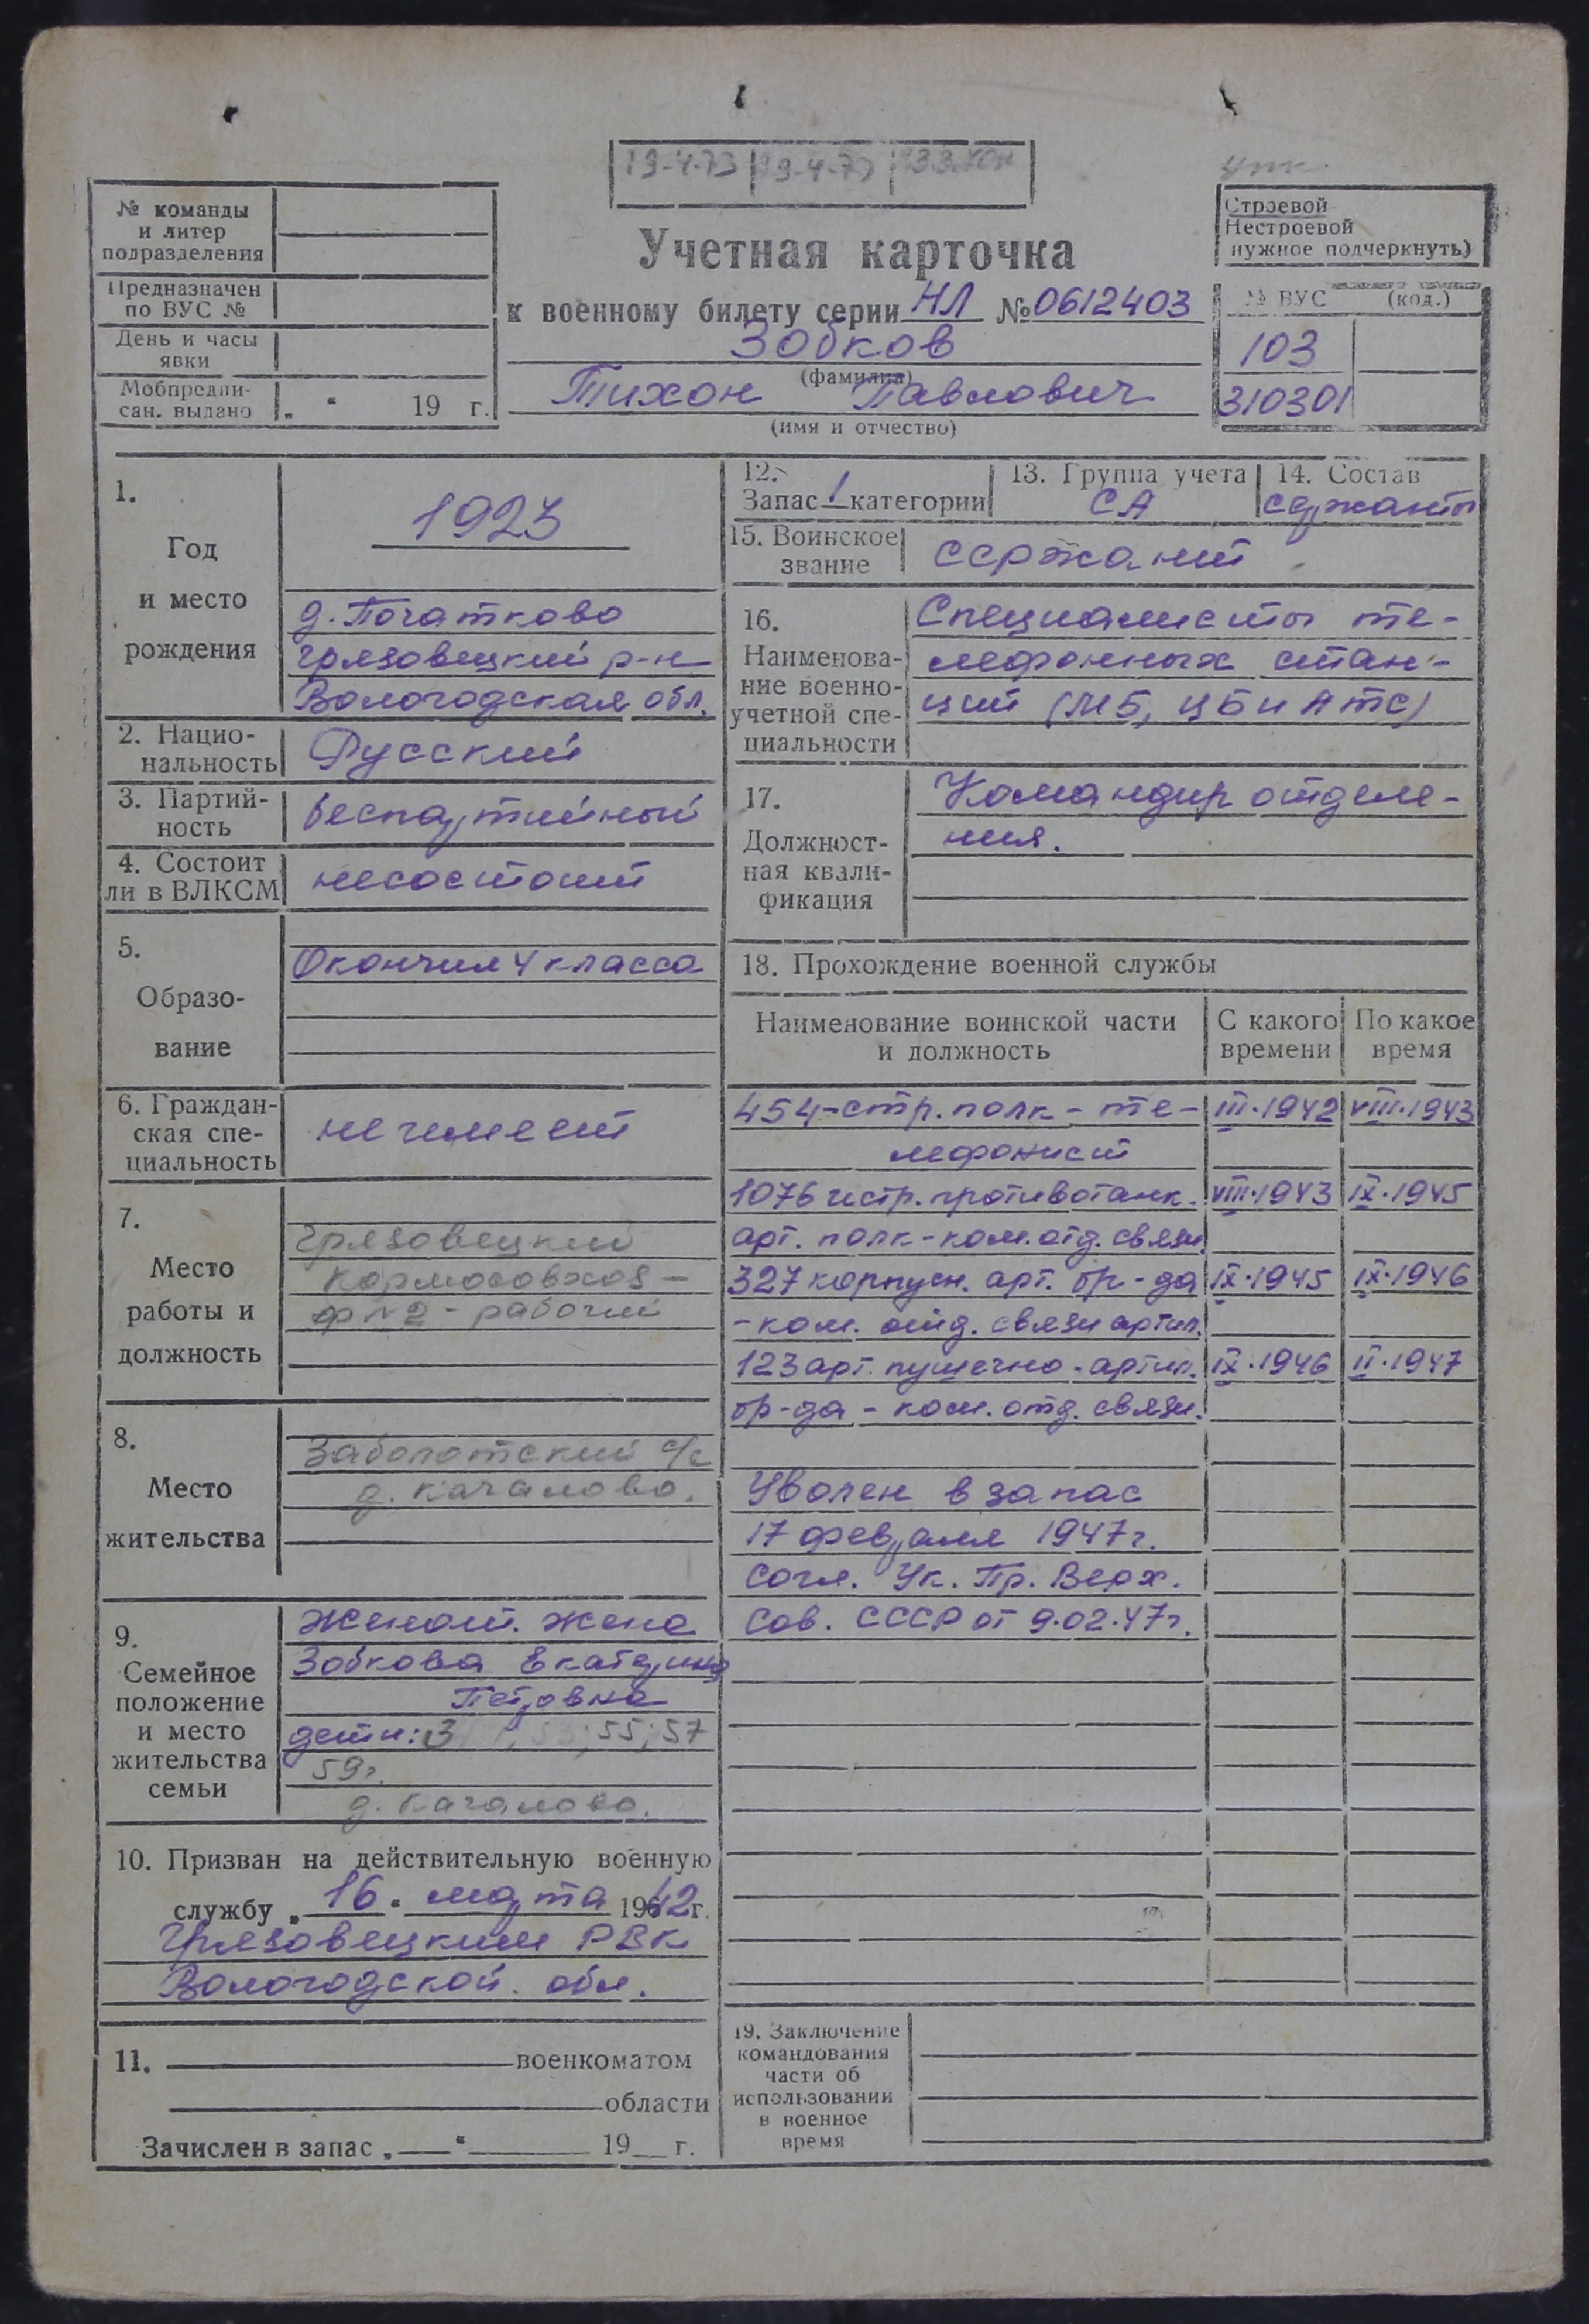 19-4-73
№ команды
и литер
подразделения
Предназначен
по ВУС №
День и часы
явки
Мобпредпи-
сан. выдано „ “ 19 г.
Учетная карточка
к военному билету серии НЛ № 0612403
Зобков
(фамилия)
Тихон Павлович
(имя и отчество)
Строевой
Нестроевой
нужное подчеркнуть)
№ ВУС (код.)
103
310301
1.
Год
и место
рождения
1923
д. Початково
Грязовецкий р-н
Вологодская обл.
2. Нацио-
нальность
Русский
3. Партий-
ность
беспартийный
4. Состоит
ли в ВЛКСМ
несостоит
5.
Образо-
вание
Окончил 4 класса
6. Граждан-
ская спе-
циальность
не имеет
7.
Место
работы и
должность
Грязовецкий
кормосовхоз -
ф №2 - рабочий
8.
Место
жительства
Заболотский с/с
д. Качалово.
9.
Семейное
положение
и место
жительства
семьи
Женат. Жена
Зобкова Екатерина
Петровна
дети: 3 55; 57
59г.
д. Качалово.
10. Призван на действительную военную
службу „16“ марта 1942 г.
Грязовецким РВК
Вологодской обл.
11. военкоматом
области
Зачислен в запас „ “ 19 г.
12.
Запас 1 категории
13. Группа учета
СА
14. Состав
сержанты
15. Воинское
звание
сержант
16.
Наименова-
ние военно-
учетной спе-
циальности
Специалисты те-
лефонных стан-
ций (МБ, ЦБ и АТС)
17.
Должност-
ная квали-
фикация
Командир отделе-
ния.
18. Прохождение военной службы
Наименование воинской части
и должность
С какого
времени
По какое
время
454-стр. полк - те- III.1942 VIII.1943
лефонист
1076 истр. противотанк. VIII.1943 IX.1945
арт. полк - ком. отд. связи
327 корпусн. арт. бр-да IX.1945 IX.1946
- ком. отд. связи артил.
123 арт. пушечно-артил. IX.1946 II.1947
бр-да - ком. отд. связи.
Уволен в запас
17 февраля 1947г.
согл. Ук. Пр. Верх.
Сов. СССР от 9.02.47г.
19. Заключение
командования
части об
использовании
в военное
время